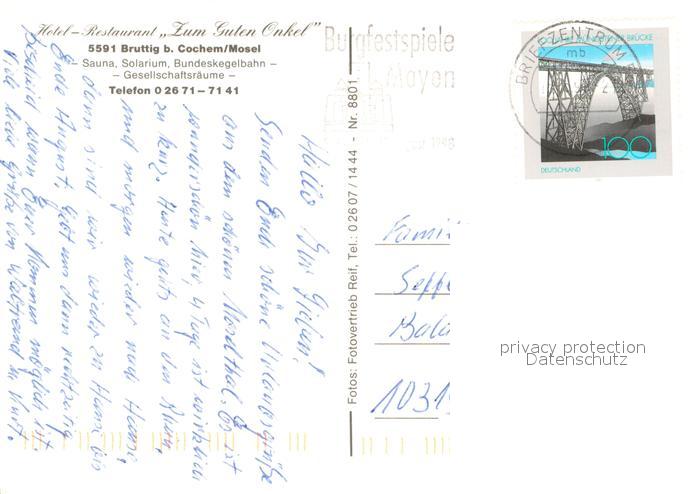 Hotel-Restaurant „Zum Guten Onkel"
5591 Bruttig b. Cochem/Mosel
Sauna, Solarium, Bundeskegelbahn –
– Gesellschaftsräume –
Telefon 0 26 71 – 71 41
Burgfestspiele
Mayen
1998
BRIEFZENTRUM
mb
BRÜCKE
100
DEUTSCHLAND
Hallo Ihr Lieben!
Senden Euch schöne Urlaubsgrüße
aus dem schönen Moseltal. Es ist
schön hier, 4 Tage ist
zu kurz. Heute geht's an den Rhein,
und morgen wieder nach Hause,
dann sind wir wieder zu Hause bis
Ende August, gebt uns dann rechtzeitig
Bescheid wann Euer Kommen möglich ist.
Viele liebe Grüße von
Fotos: Fotovertrieb Reif, Tel.: 0 26 07 / 14 44 - Nr. 8801
Famil
Sepp
Bala
1031
privacy protection
Datenschutz